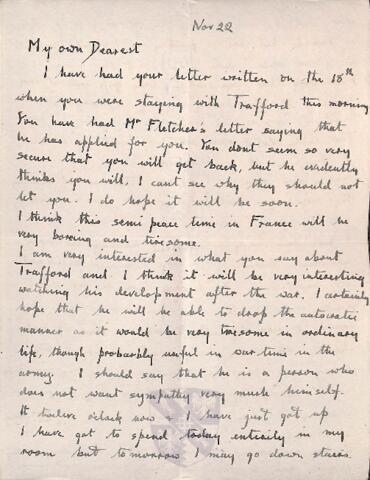 Nov 22
My own Dearest
I have had your letter written on the 18th
when you were staying with Trafford this morning
You have had Mr Fletcher's letter saying that
he has applied for you. You dont seem so very
secure that you will get back, but he evidently
thinks you will, I cant see why they should not
let you. I do hope it will be soon.
I think this semi peace time in France will be
very boreing and tiresome.
I am very interested in what you say about
Trafford and I think it will be very interesting
watching his development after the war. I certainly
hope that he will be able to drop the autocratic
manner as it would be very tiresome in ordinary
life, though probably useful in war time in the
army. I should say that he is a person who
does not want sympathy very much himself.
It twelve o'clock now & I have just got up
I have got to spend today entirely in my
room but tomorrow I may go down stairs.